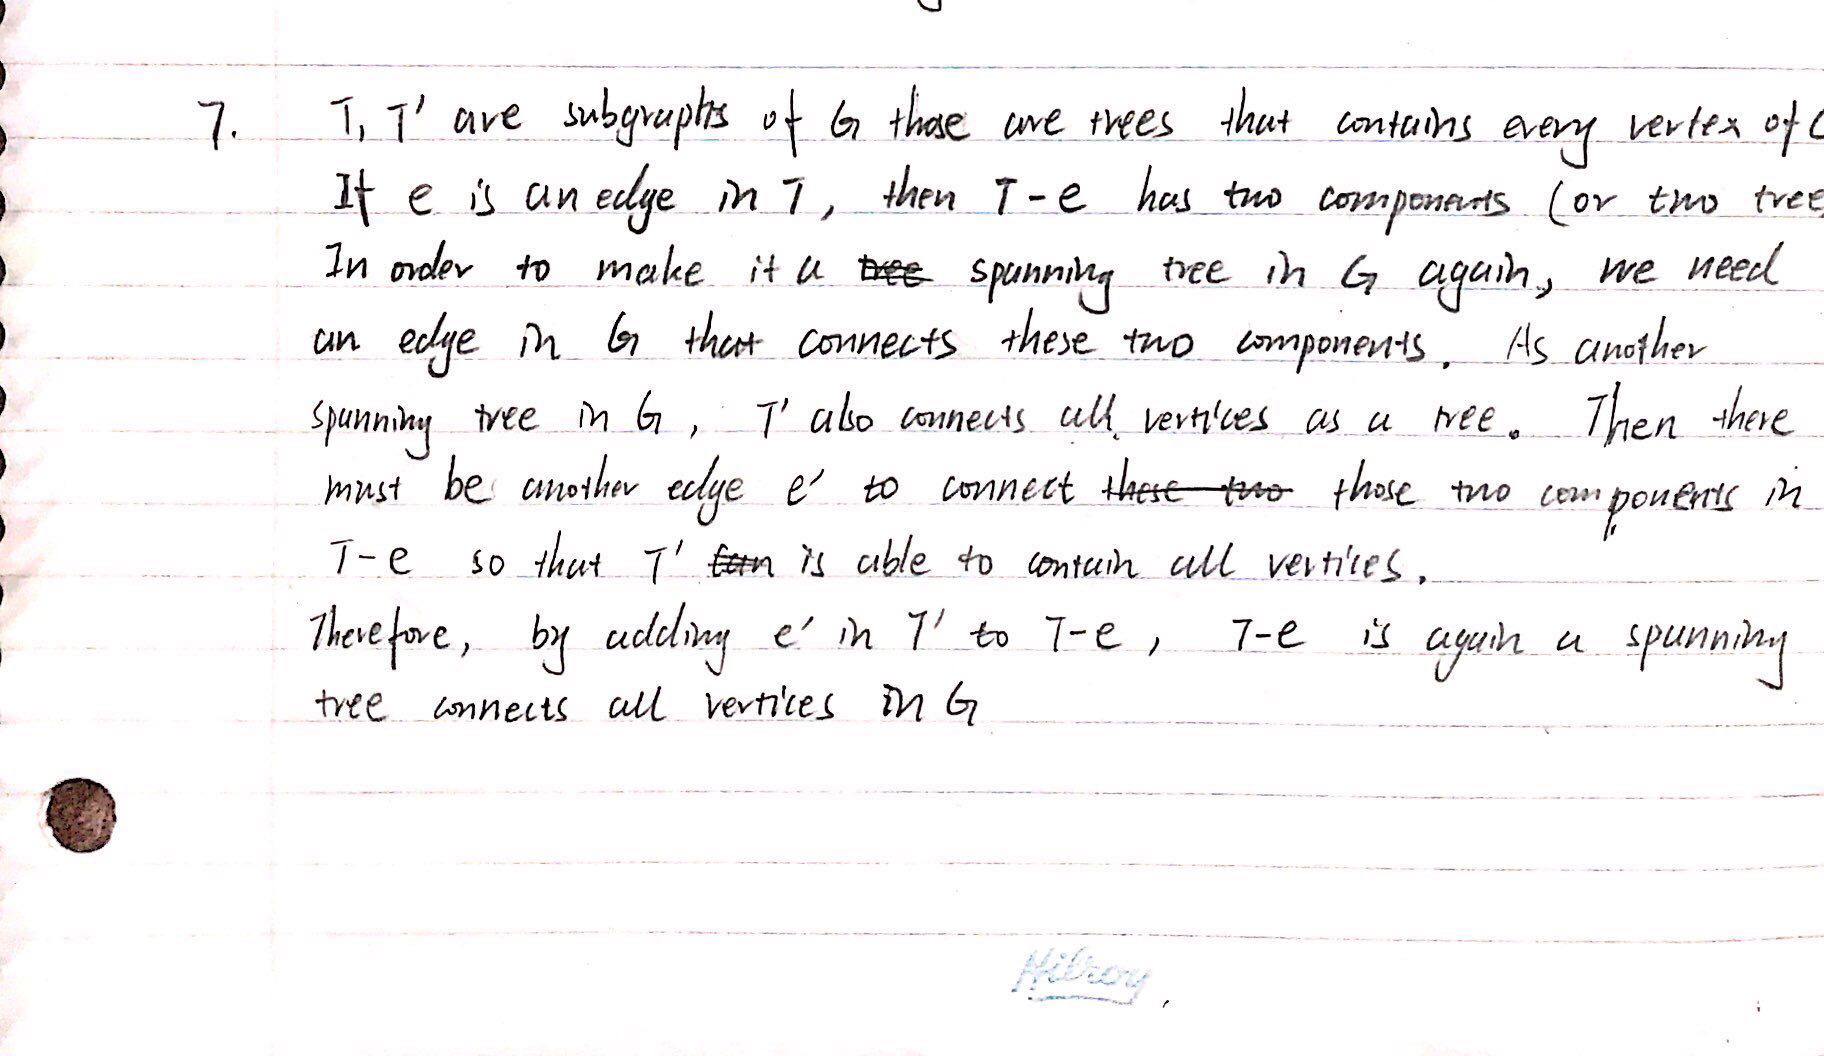 7. T, T' are subgraphs of G those are trees that contains every vertex of G
If e is an edge in T, then T-e has two components (or two tree
In order to make it a tree spanning tree in G again, we need
an edge in G that connects these two components. As another
spanning tree in G, T' also connects all vertices as a tree. Then there
must be another edge e' to connect these two those two components in
T-e so that T' can is able to contain all vertices.
Therefore, by adding e' in T' to T-e, T-e is again a spanning
tree connects all vertices in G
Hilroy